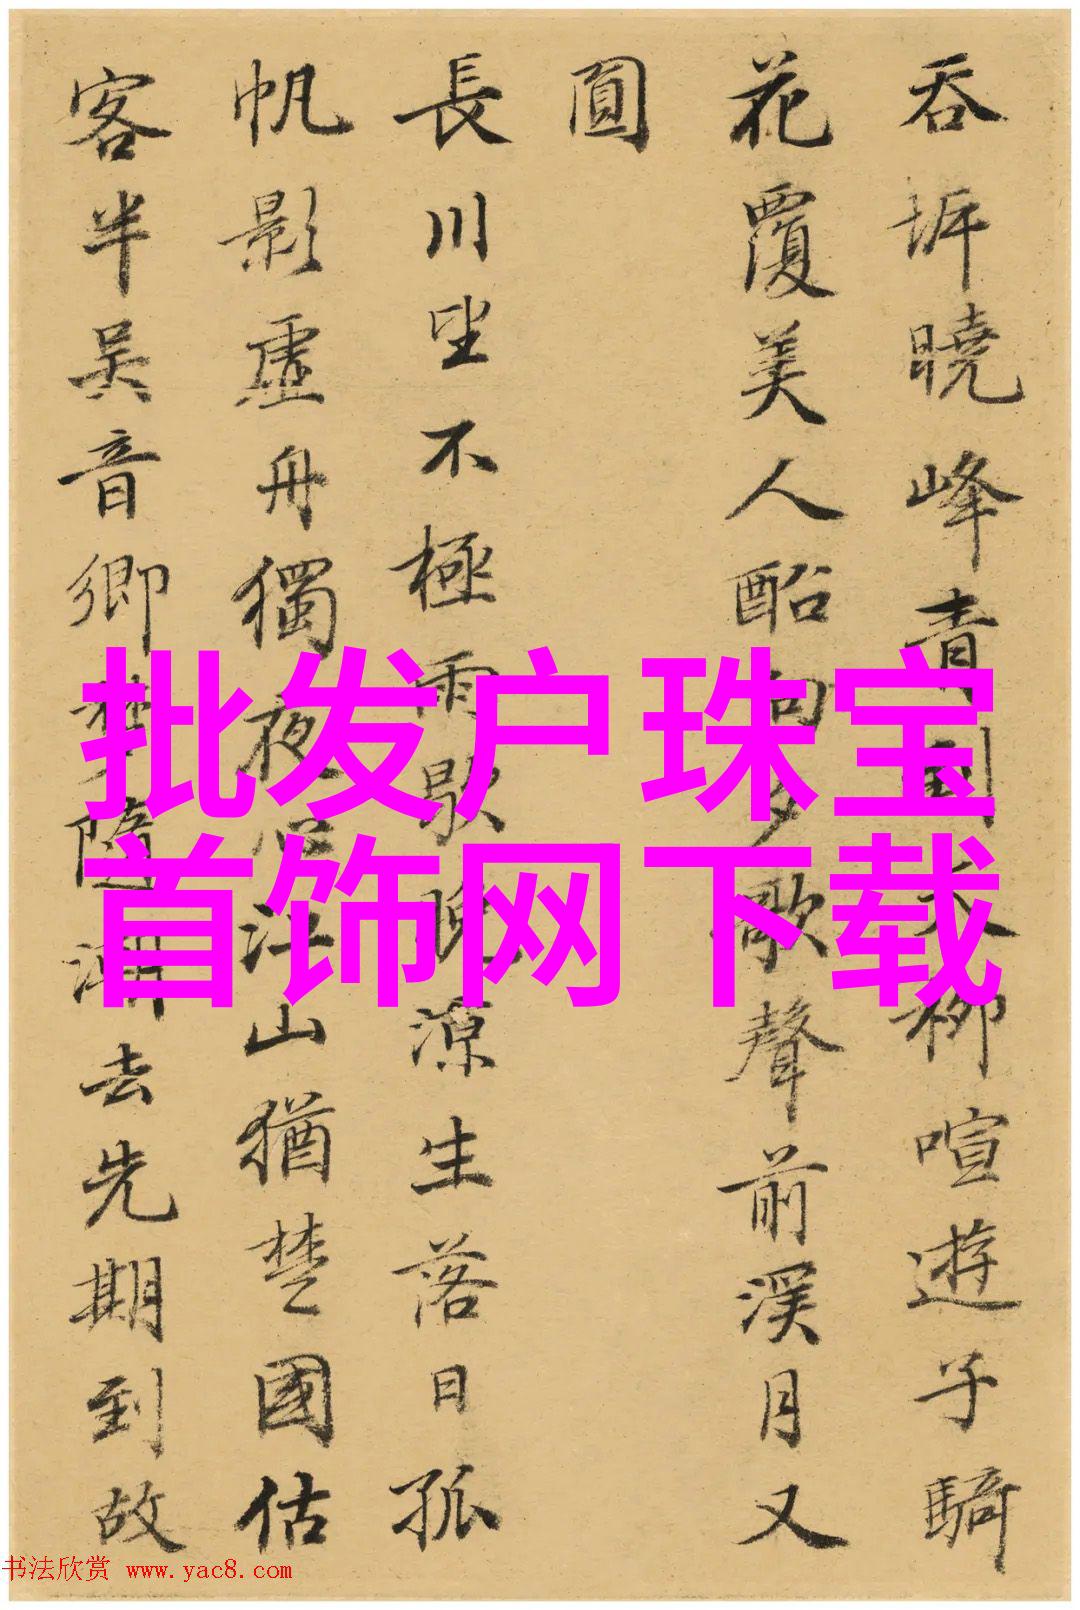 吞坼曉峰青園喬柳喧遊子騎
花覆美人酩向夕歌聲前溪月又
圓
長川坐不極雨歇晚凉生落日孤
帆影虛舟獨夜心江山猶楚國估
客半吳音鄉夢隨潮去先期到故
批发户珠宝
首饰网下载
书法欣赏 www.yac8.com